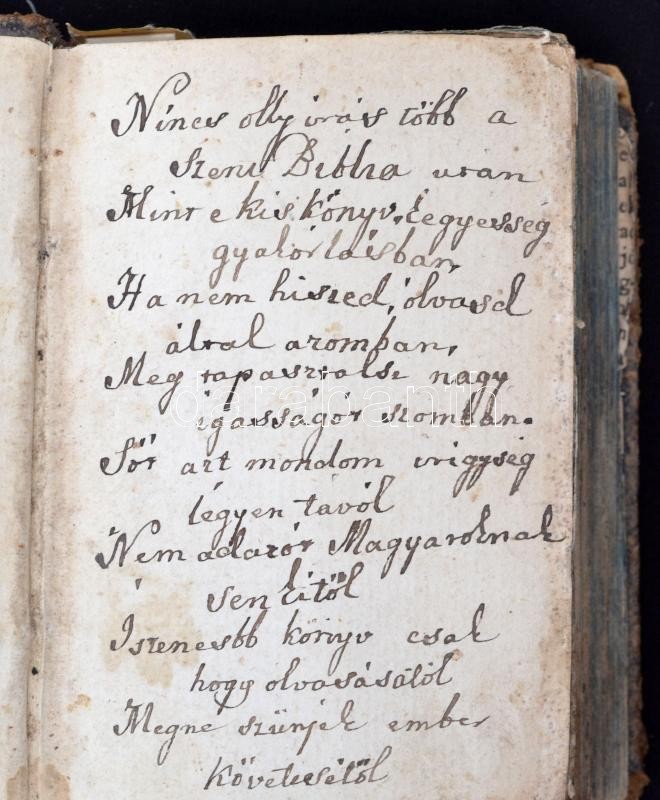 Nincs olly irás több a
Szent Biblia után
Mint e kis könyv, kegyesség
gyakorlásban,
Ha nem hiszed, ólvasd
által azomban,
Meg tapasztalsz nagy
igasságót szomban.
Sőt azt mondom irigység
légyen távól
Nem adatót Magyaroknak
senkitől
Istenesbb könyv csak
hogy olvasásától
Megne szünjék ember
követesétől
darabanth